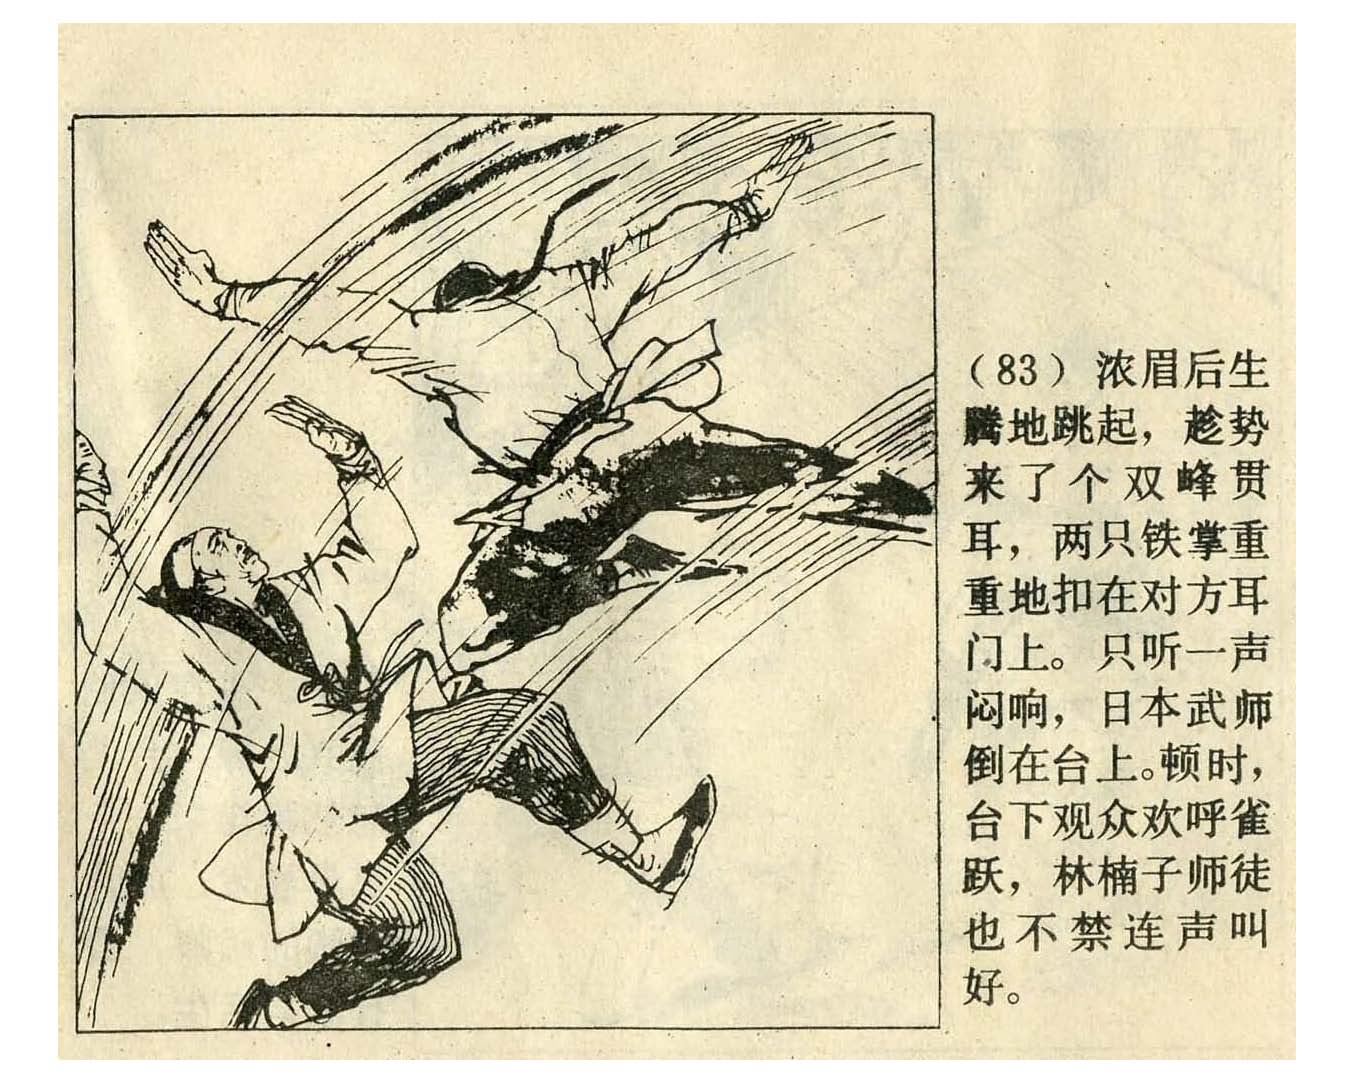 （83）浓眉后生
腾地跳起，趁势
来了个双峰贯
耳，两只铁掌重
重地扣在对方耳
门上。只听一声
闷响，日本武师
倒在台上。顿时，
台下观众欢呼雀
跃，林楠子师徒
也不禁连声叫
好。